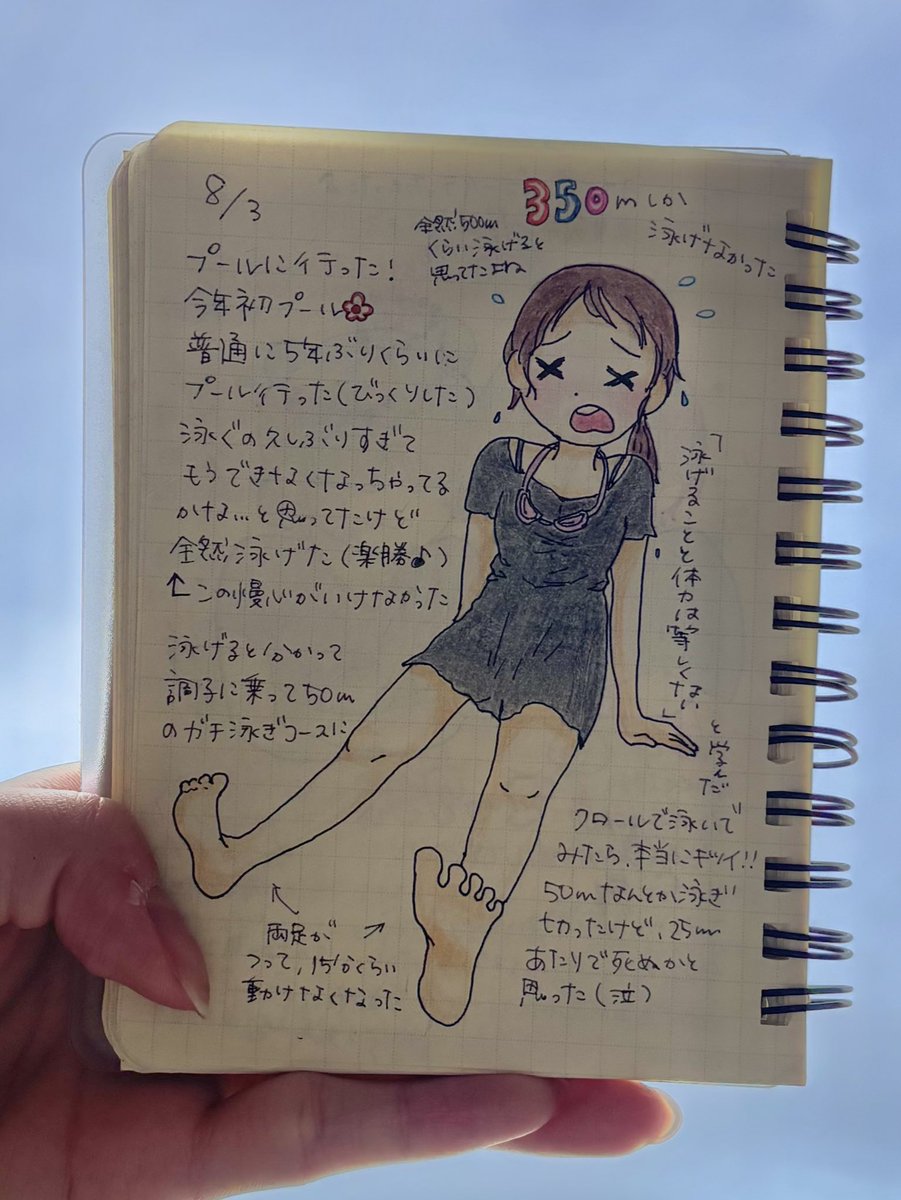 8/3
350mしか
泳げなかった
全然500m
くらい泳げると
思ってたよね
プールに行った!
今年初プール
普通に5年ぶりくらいに
プール行った(びっくりした)
泳ぐの久しぶりすぎて
もうできなくなっちゃってる
かな…と思ってたけど
全然泳げた(楽勝♪)
↑この慢心がいけなかった
泳げると分かって
調子に乗って50m
のガチ泳ぎコースに
「泳げることと体力は等しくない」
と学んだ
クロールで泳いで
みたら、本当にキツイ!!
50mなんとか泳ぎ
切ったけど、25m
あたりで死ぬかと
思った(泣)
両足が
つって、15分くらい
動けなくなった